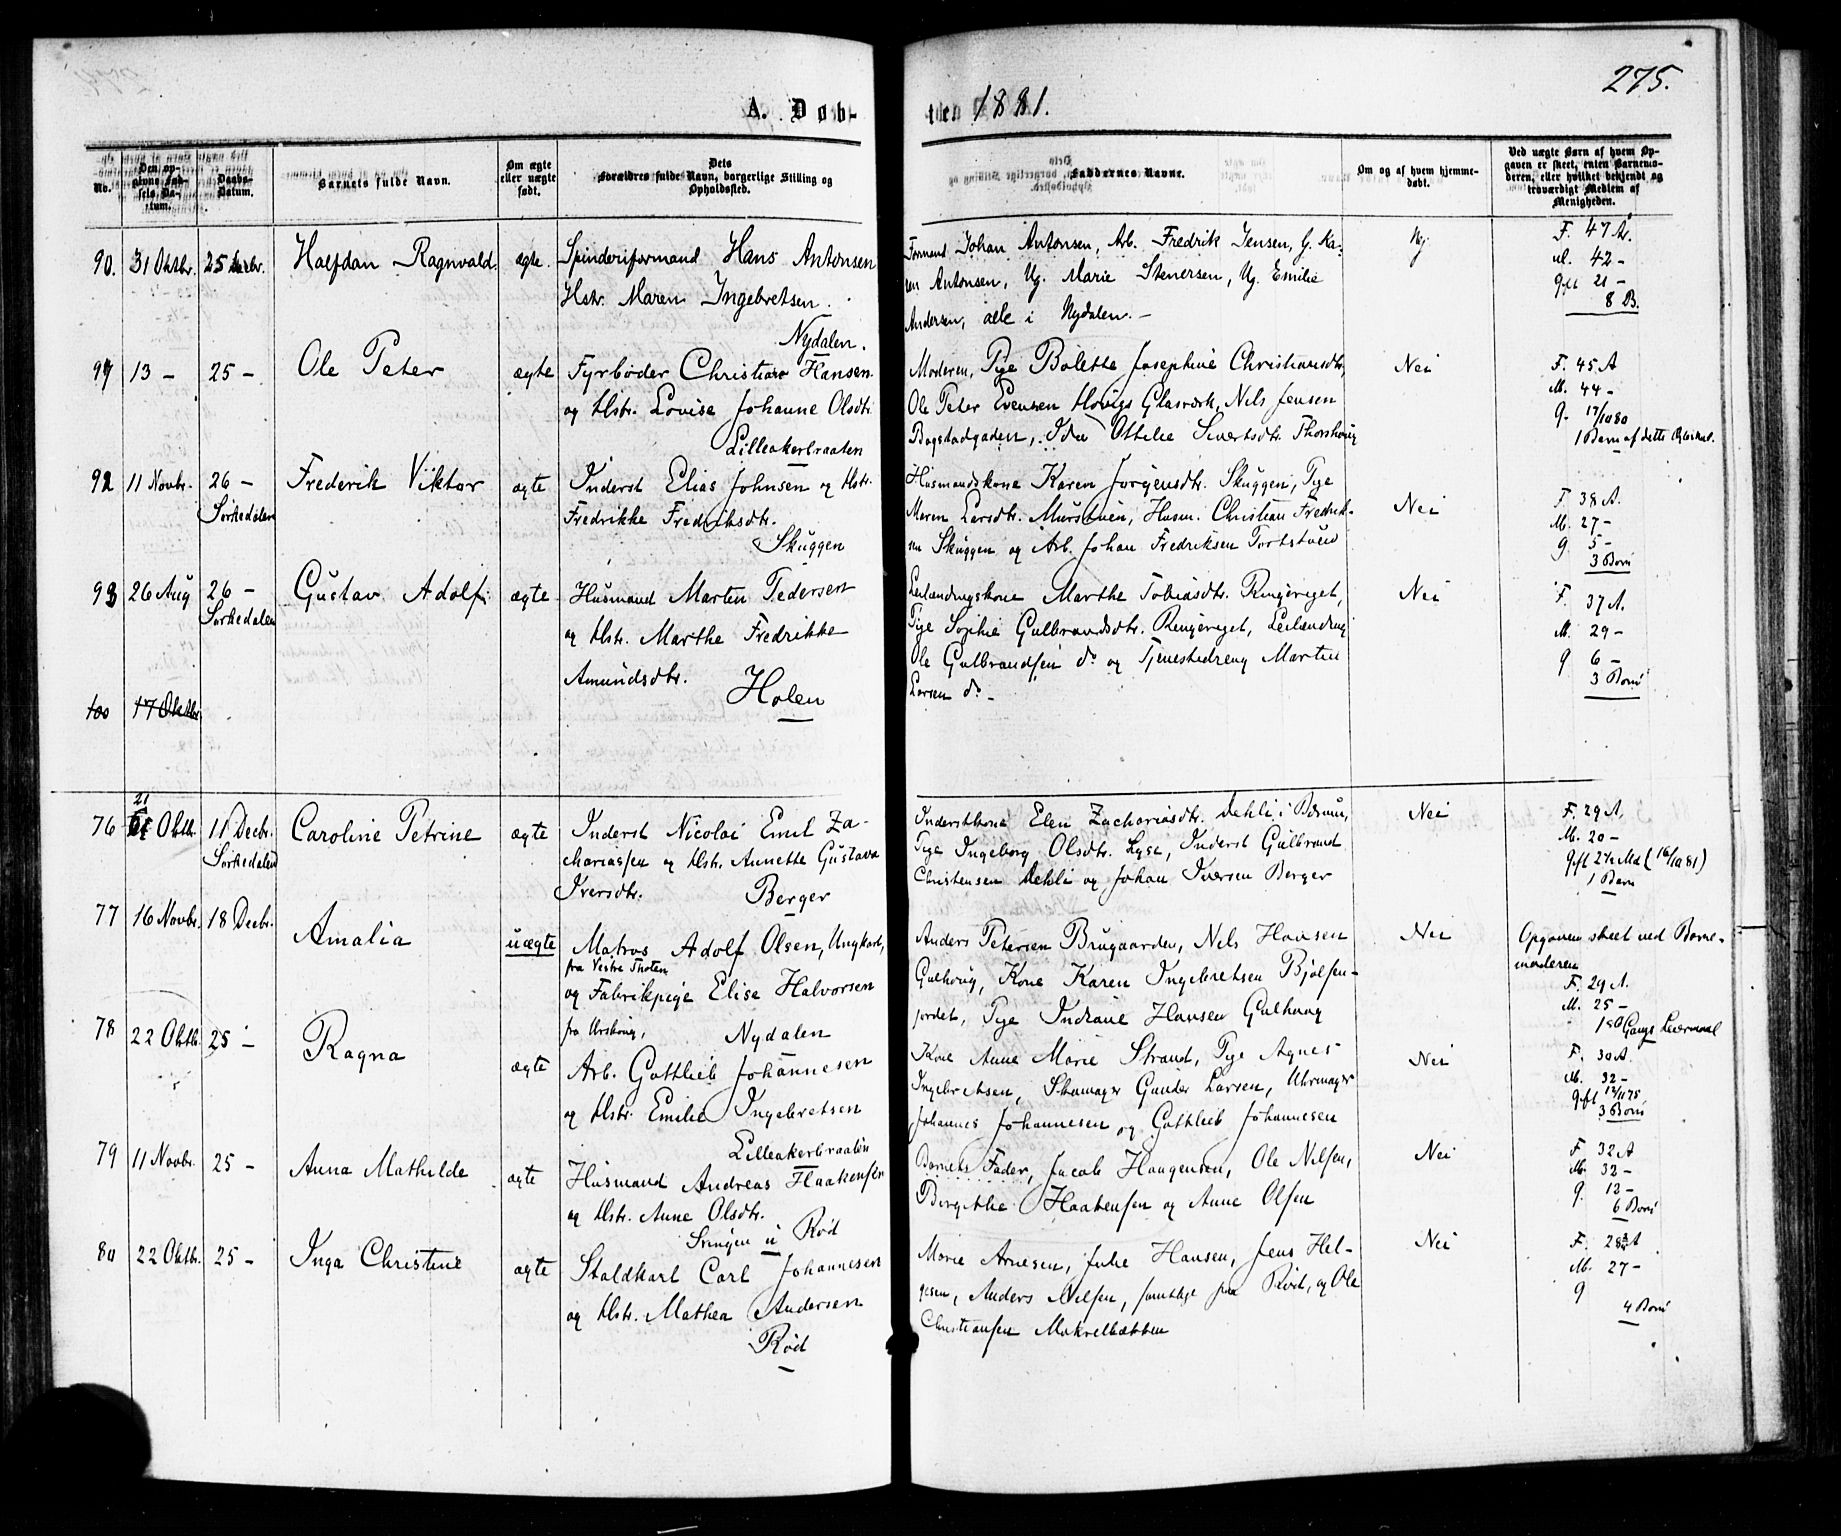 275.
A. Døb-
ten 1881.
No.
Den opgivne Fødsels-Datum.
Daabs-Datum.
Barnets fulde Navn.
Om ægte eller uægte født.
Dets Forældres fulde Navn, borgerlige Stilling og Opholdssted.
Faddernes Navne.
Om og af hvem hjemmedøbt.
Ved uægte Børn af hvem Opgaven er skeet, enten Barnemoderen, eller hvilket bekjendt og troværdigt Medlem af Menigheden.
90. 31 Oktbr. 25 Halfdan Ragnvald. ægte. Spinderiformand Hans Antonsen
Hstr. Maren Ingebretsen.
Nydalen.
Formand Johan Antonsen, Arb. Fredrik Jensen, G. Ka-
ren Antonsen, Ug. Marie Stenersen, Ug. Emilie
Andersen, alle i Nydalen. —
Nej
F. 47 År.
M. 42 —
gft 21 —
8 B.
91 13 — 25 — Ole Peter ægte Fyrbøder Christian Hansen
og Hstr. Lovise Johanne Olsdtr.
Lilleakerbraaten
Moderen, Pige Bolette Josephine Christiansdtr,
Ole Peter Evensen Høvigs Glasværk, Nils Jensen
Bogstadgaden, Ida Ottelie Sivertsdtr. Thorshoug
Nei
F. 45 A
M. 44 —
g. 17/10 80
1 Barn af dette Ægteskab.
92 11 Novbr. 26 — Sørkedalen Frederik Viktor ægte Inderst Elias Johnsen og Hstr.
Fredrikke Fredriksdtr.
Skuggen
Husmandskone Karen Jørgensdtr. Skuggen, Pige
Maren Larsdtr. Murstuen, Husm. Christian Fredrik-
sen Skuggen og Arb. Johan Fredriksen Tortstuen
Nei
F. 38 A.
M. 27 —
g 5 —
3 Børn
93 26 Aug 26 — Sørkedalen Gustav Adolf ægte Husmand Marten Pedersen
og Hstr. Marthe Fredrikke
Amundsdtr.
Holen
Leilændingskone Marthe Tobiasdtr. Ringeriget,
Pige Sophie Gulbrandsdtr. Ringeriget, Leilænding
Ole Gulbrandsen do og Tjenestedreng Martin
Larsen do —
Nei
F. 37 A.
M. 29 —
g 6 —
3 Børn
100 17 Oktbr
76 21 Oktb. 11 Decbr. Sørkedalen Caroline Petrine ægte Inderst Nicolai Emil Za-
chariassen og Hstr. Annette Gustava
Iversdtr. Berger
Inderstkone Elen Zachariasdtr. Dehli i Bærum,
Pige Ingeborg Olsdtr. Lyse, Inderst Gulbrand
Christensen Dehli og Johan Iversen Berger
Nei
F. 29 A.
M. 20 —
gft 2½ Md (16/10 81)
1 Barn
77 16 Novbr. 18 Decbr. Amalia uægte Matros Adolf Olsen, Ungkarl,
fra Vestre Thoten
og Fabrikpige Elise Halvorsen
fra Urskoug, Nydalen
Anders Petersen Brugaarden, Nils Hansen
Gulhoug, Kone Karen Ingebretsen Bjølsen-
jordet, Pige Indiane Hansen Gulhoug
Nei
Opgaven skeet ved Barne-
moderen
F. 29 A.
M. 25 —
1ste Gangs Leiermaal
78 22 Oktb. 25 — Ragna ægte Arb. Gottlieb Johannesen
og Hstr. Emilie Ingebretsen
Lilleakerbraaten
Kone Anne Marie Strand, Pige Agnes
Ingebretsen, Skomager Gunder Larsen, Uhrmager
Johannes Johannesen og Gottlieb Johannesen
Nei
F. 30 A.
M. 32 —
gft 12/11 75
3 Børn
79 11 Novbr. 25 — Anna Mathilde ægte Husmand Andreas Haakensen
og Hstr. Anne Olsdtr.
Svingen u Rød
Barnets Fader, Jacob Haagensen, Ole Nilsen,
Birgithe Haakensen og Anne Olsen
Nei
F. 32 A
M. 32 —
g. 12 —
6 Børn
80 22 Oktb. 25 — Inga Christine ægte Staldkarl Carl Johannesen
og Hstr. Mathea Andersen
Rød
Marie Arnesen, Julie Hansen, Jens Hel-
gesen, Anders Nilsen, samtlige fra Rød, og Ole
Christiansen Makrelbækken
Nei
F. 28¾ A
M. 27 —
g
4 Børn